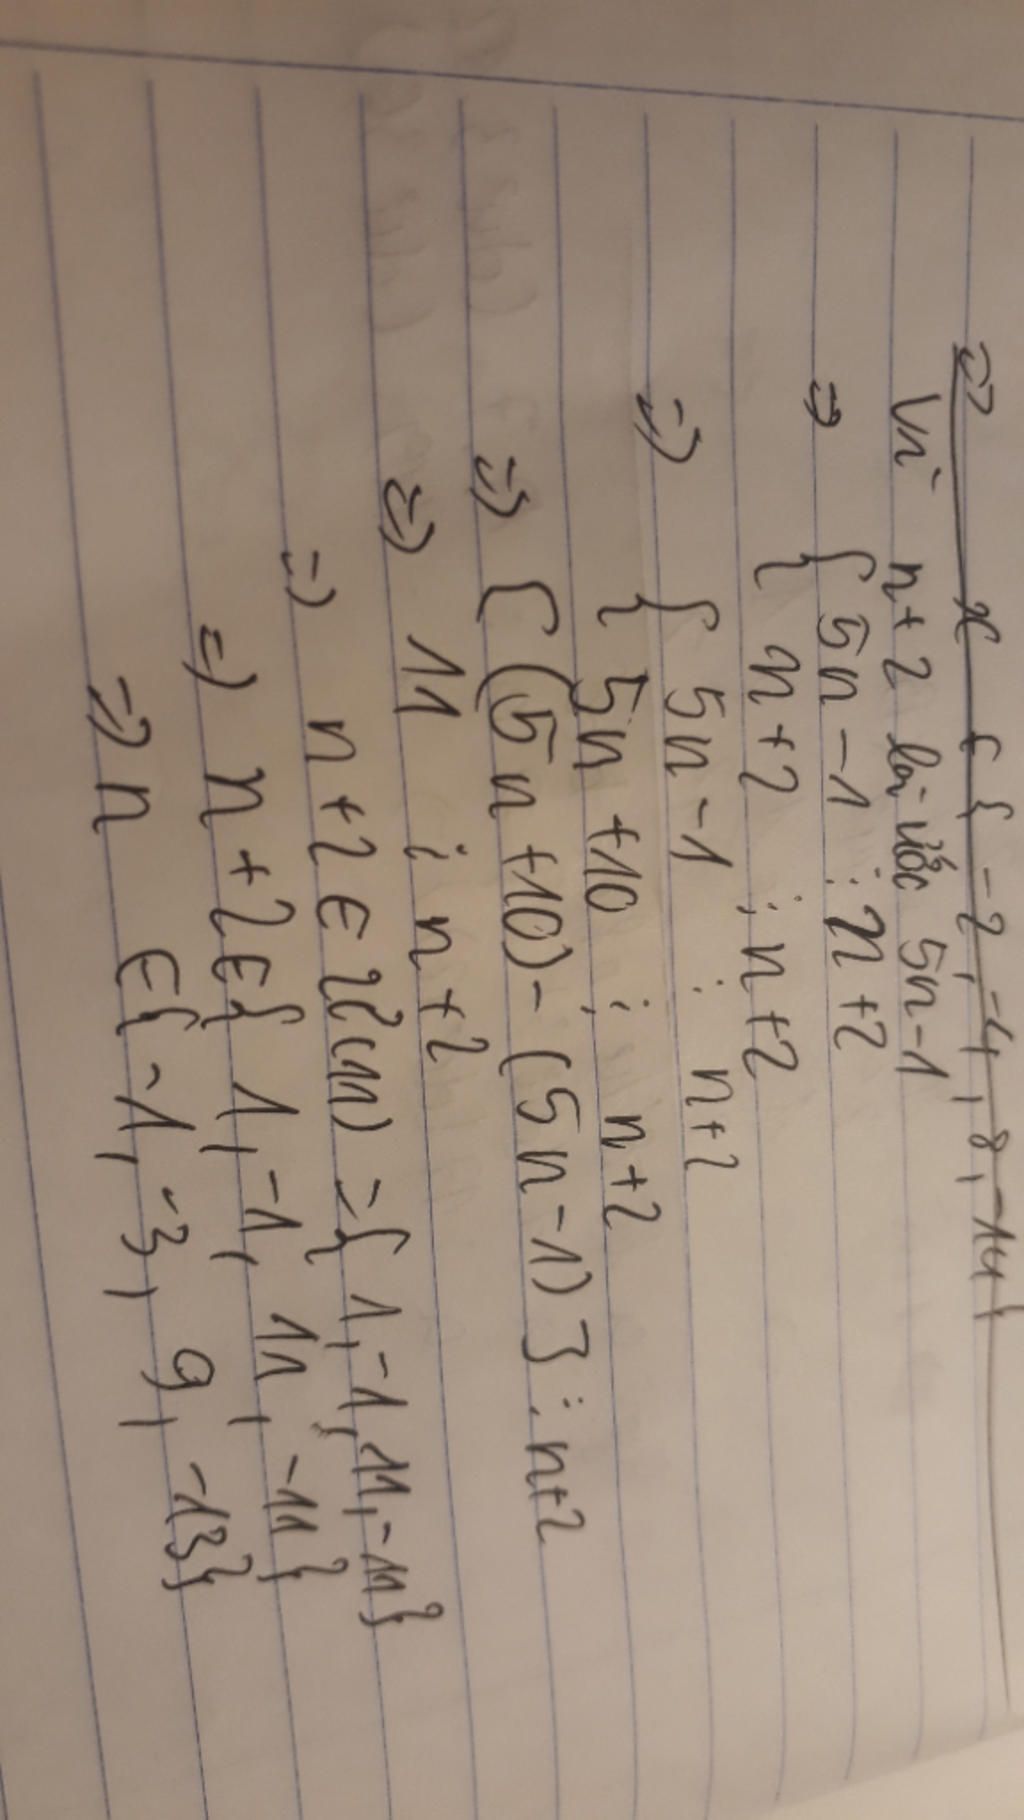 => x ∈ { -2, -4, 8, -14}
Vì n+2 là ước 5n-1
=> { 5n-1 ⋮ n+2
{ n+2 ⋮ n+2
=> { 5n-1 ⋮ n+2
{ 5n+10 ⋮ n+2
=> [(5n+10)-(5n-1)] ⋮ n+2
=> 11 ⋮ n+2
=> n+2 ∈ Ư(11) = { 1, -1, 11, -11}
=> n+2 ∈ { 1, -1, 11, -11}
=> n ∈ { -1, -3, 9, -13}